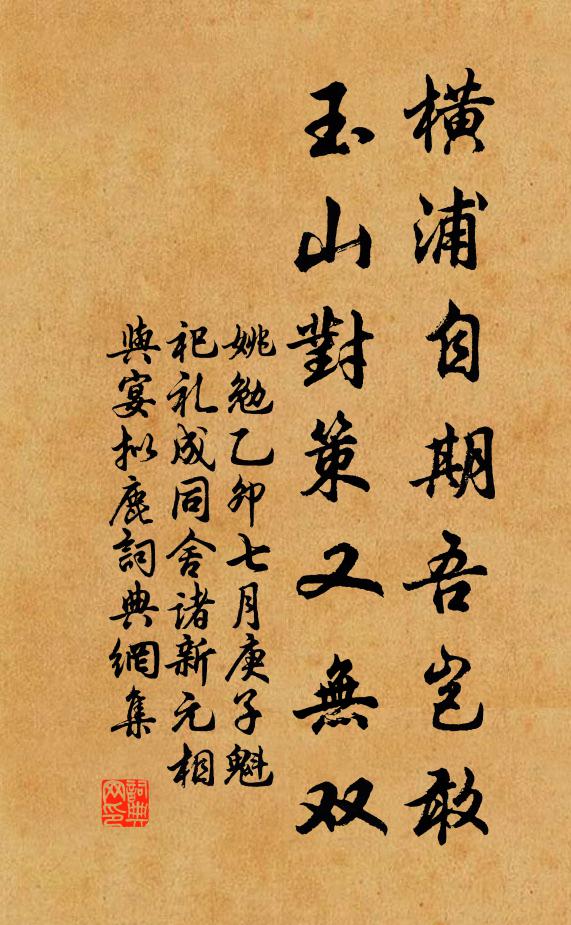 橫浦自期吾豈敢
玉山對策又無双
姚勉乙卯七月庚子魁
祀礼成同舍诸新元相
與宴拟鹿詞典網集
詞典
网印